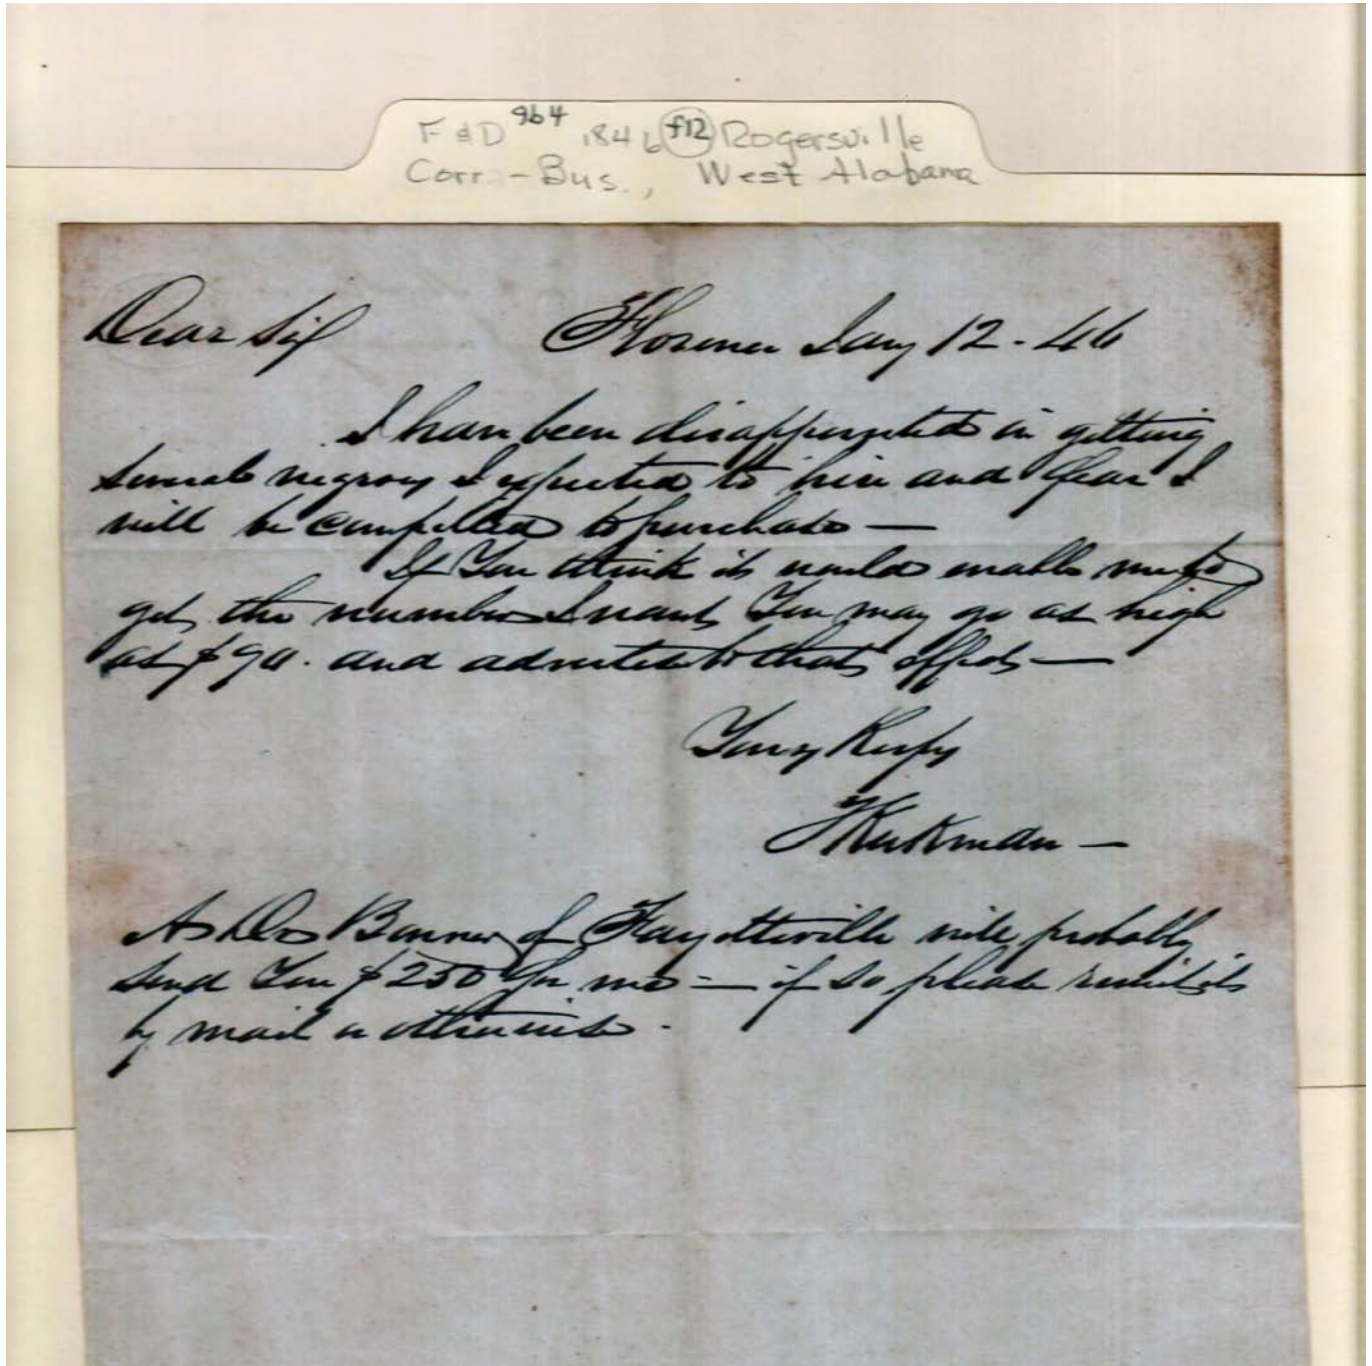 F & D 964 1846 f12 Rogersville
Corr. - Bus., West Alabama
Dear Sir Florence Jany 12 - 46
I have been disappointed in getting
several negroes I expected to hire and fear I
will be compelled to purchase —
If You think it would enable me to
get the number I want You may go as high
as $90. and advertise to that effect —
Yours Respy
JKirkman —
Bonner of Fayetteville will probably
send You $250 for me — if so please remit it
by mail or otherwise.